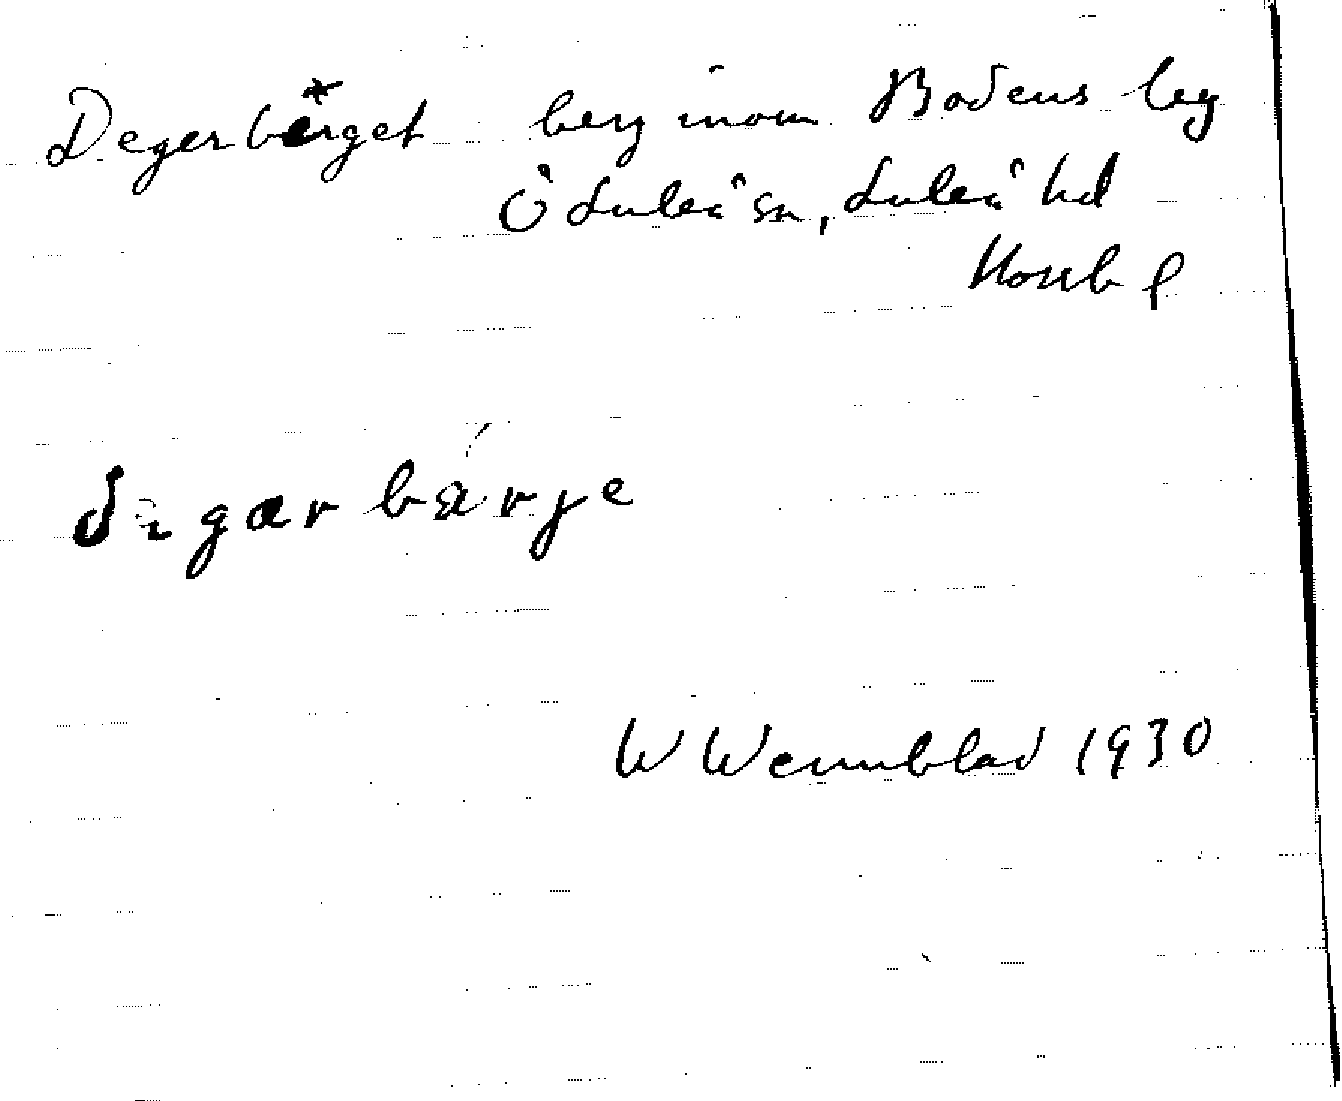 Degerberget berg inom Bodens lg
Ö Luleå sn, Luleå hd
Norrb l
W Wennblad 1930